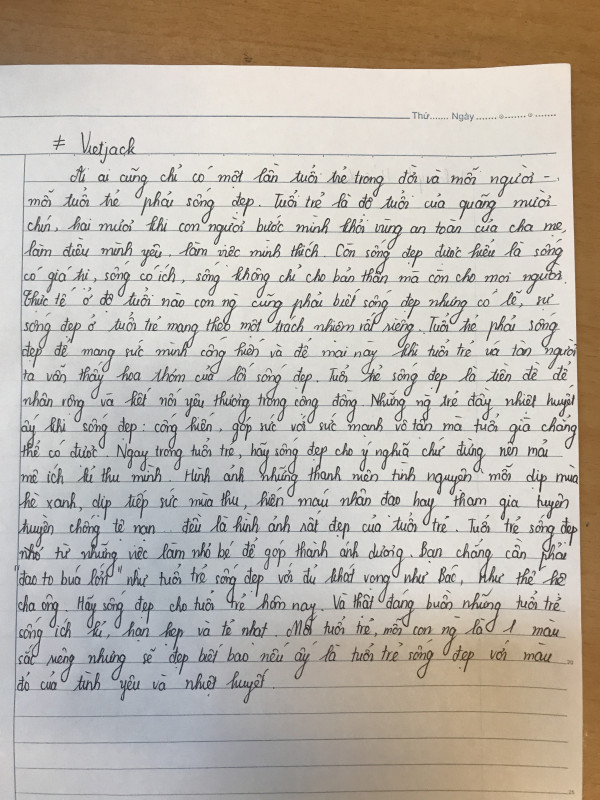 Thứ....... Ngày.......
# Vietjack
Ai ai cũng chỉ có một lần tuổi trẻ trong đời và mỗi người -
mỗi tuổi trẻ phải sống đẹp. Tuổi trẻ là độ tuổi của quãng mười
chín, hai mươi khi con người bước mình khỏi vùng an toàn của cha mẹ,
làm điều mình yêu, làm việc mình thích. Còn sống đẹp được hiểu là sống
có giá trị, sống có ích, sống không chỉ cho bản thân mà còn cho mọi người.
Thực tế ở độ tuổi nào con ng cũng phải biết sống đẹp nhưng có lẽ, sự
sống đẹp ở tuổi trẻ mang theo một trách nhiệm rất riêng. Tuổi trẻ phải sống
đẹp để mang sức mình cống hiến và để mai này khi tuổi trẻ úa tàn người
ta vẫn thấy hoa thơm của lối sống đẹp. Tuổi trẻ sống đẹp là tiền đề để
nhân rộng và kết nối yêu thương trong cộng đồng. Những ng trẻ đầy nhiệt huyết
ấy khi sống đẹp: cống hiến, góp sức với sức mạnh vô tận mà tuổi già chẳng
thể có được. Ngay trong tuổi trẻ, hãy sống đẹp cho ý nghĩa chứ đừng nên mải
mê ích kỉ thu mình. Hình ảnh những thanh niên tình nguyện mỗi dịp mùa
hè xanh, dịp tiếp sức mùa thu, hiến máu nhân đạo hay tham gia tuyên
truyền chống tệ nạn... đều là hình ảnh rất đẹp của tuổi trẻ. Tuổi trẻ sống đẹp
nhỏ từ những việc làm nhỏ bé để góp thành ánh dương. Bạn chẳng cần phải
"đao to búa lớn" như tuổi trẻ sống đẹp với đủ khát vọng như Bác, như thế hệ
cha ông. Hãy sống đẹp cho tuổi trẻ hôm nay. Và thật đáng buồn những tuổi trẻ
sống ích kỉ, hạn hẹp và tẻ nhạt. Mỗi tuổi trẻ, mỗi con ng là 1 màu
sắc riêng nhưng sẽ đẹp biết bao nếu ấy là tuổi trẻ sống đẹp với màu
đỏ của tình yêu và nhiệt huyết.
20
25